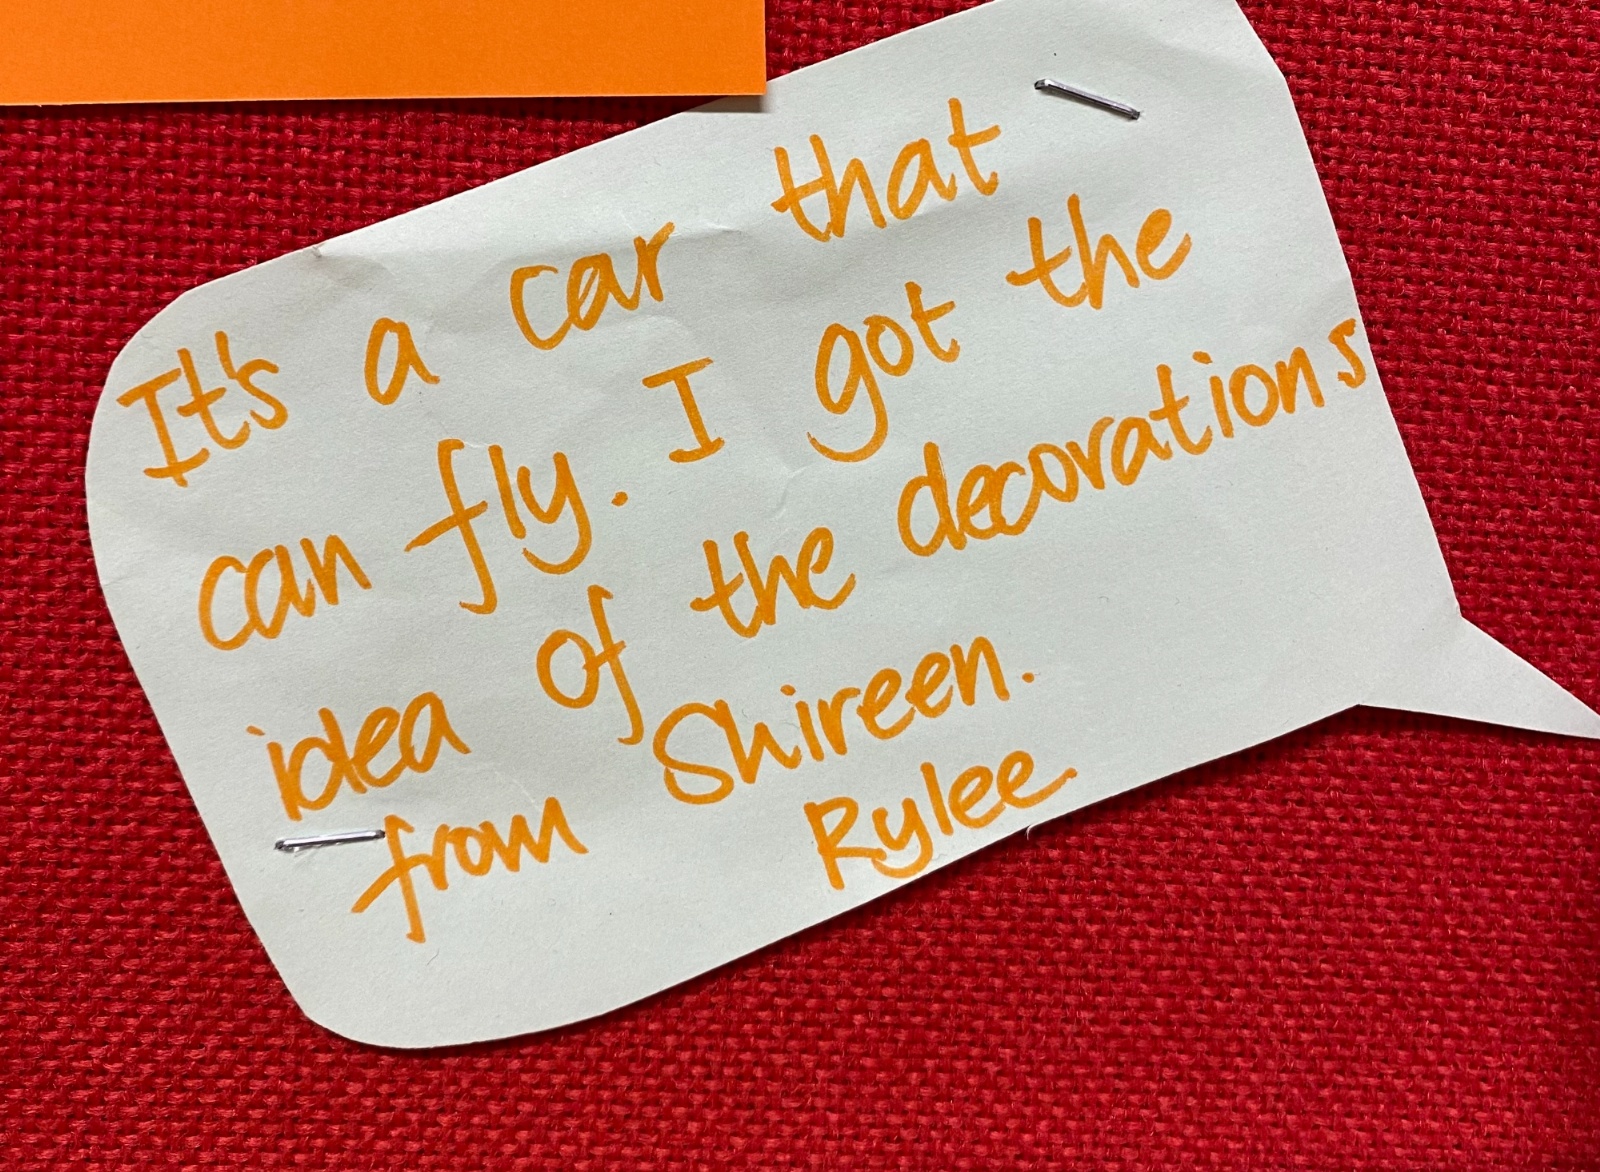 It's a car that
can fly. I got the
idea of the decorations
from Shireen.
Rylee